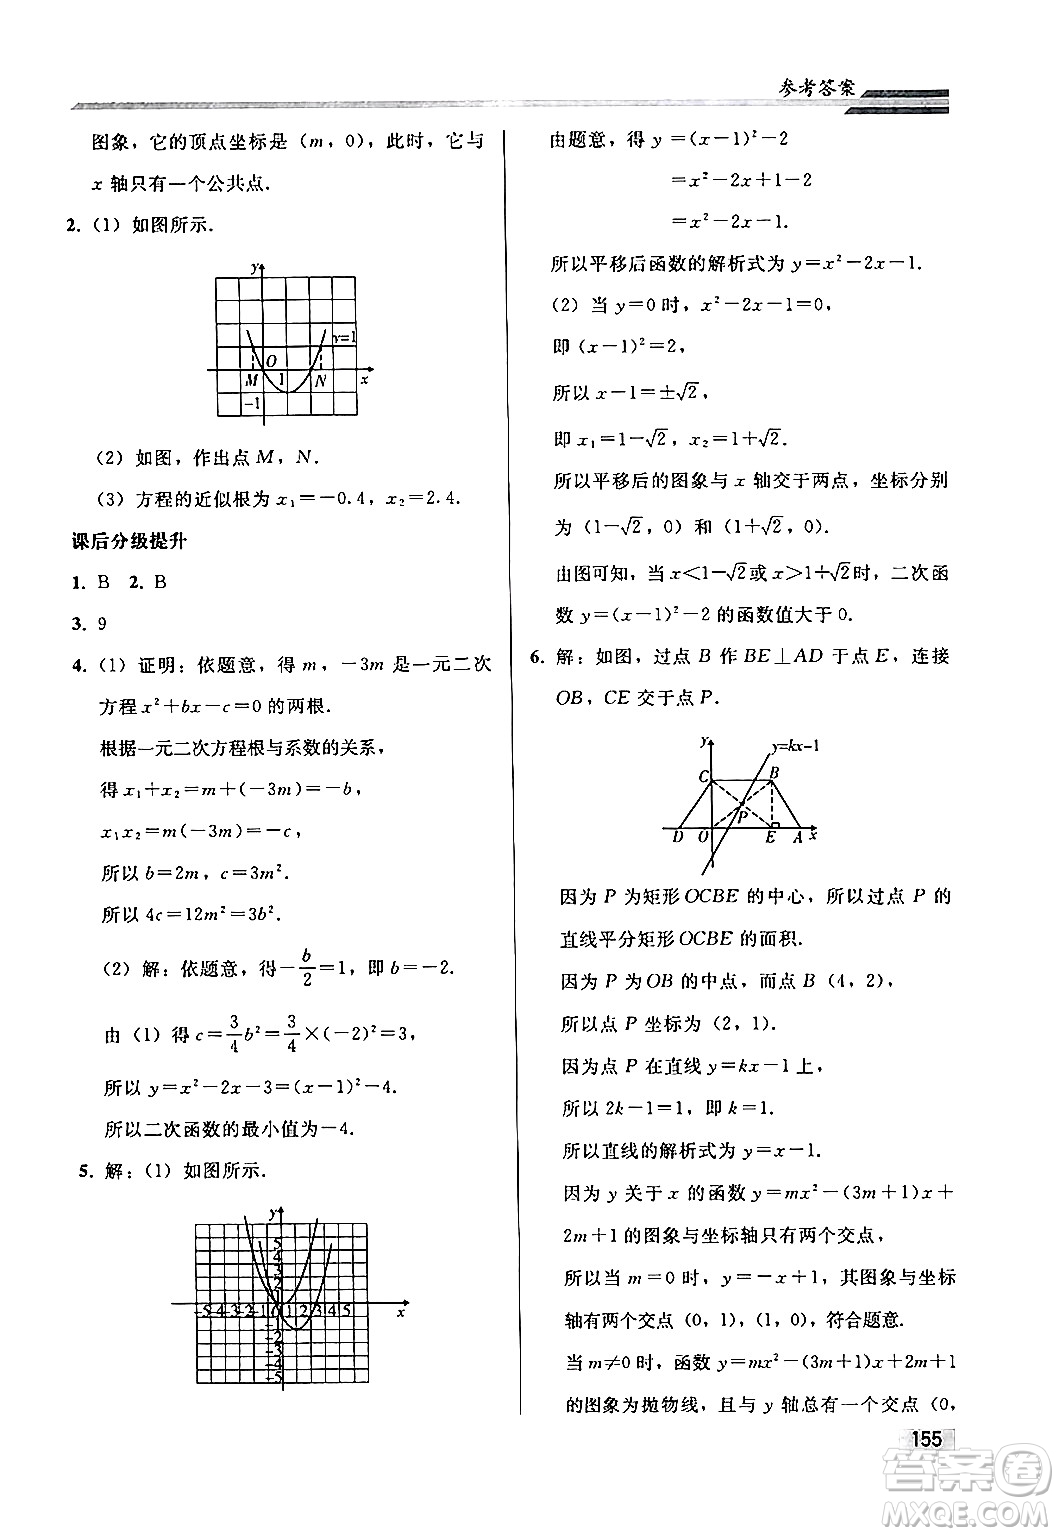 参考答案
图象，它的顶点坐标是（m，0），此时，它与
x 轴只有一个公共点.
2.（1）如图所示.
y
y=1
O
M 1 N x
-1
（2）如图，作出点 M，N.
（3）方程的近似根为 x₁=-0.4，x₂=2.4.
课后分级提升
1. B  2. B
3. 9
4.（1）证明：依题意，得 m，-3m 是一元二次
方程 x²+bx-c=0 的两根.
根据一元二次方程根与系数的关系，
得 x₁+x₂=m+(-3m)=-b，
x₁x₂=m(-3m)=-c，
所以 b=2m，c=3m².
所以 4c=12m²=3b².
（2）解：依题意，得-b/2=1，即 b=-2.
由（1）得 c=3/4b²=3/4×(-2)²=3，
所以 y=x²-2x-3=(x-1)²-4.
所以二次函数的最小值为-4.
5. 解：（1）如图所示.
y
5
4
3
2
1
-5-4-3-2-1 0 1 2 3 4 5 x
-2
-3
-4
-5
由题意，得 y=(x-1)²-2
=x²-2x+1-2
=x²-2x-1.
所以平移后函数的解析式为 y=x²-2x-1.
（2）当 y=0 时，x²-2x-1=0，
即(x-1)²=2，
所以 x-1=±√2，
即 x₁=1-√2，x₂=1+√2.
所以平移后的图象与 x 轴交于两点，坐标分别
为（1-√2，0）和（1+√2，0）.
由图可知，当 x<1-√2或 x>1+√2时，二次函
数 y=(x-1)²-2 的函数值大于 0.
6. 解：如图，过点 B 作 BE⊥AD 于点 E，连接
OB，CE 交于点 P.
y
y=kx-1
C B
P
D O E A x
因为 P 为矩形 OCBE 的中心，所以过点 P 的
直线平分矩形 OCBE 的面积.
因为 P 为 OB 的中点，而点 B（4，2），
所以点 P 坐标为（2，1）.
因为点 P 在直线 y=kx-1 上，
所以 2k-1=1，即 k=1.
所以直线的解析式为 y=x-1.
因为 y 关于 x 的函数 y=mx²-(3m+1)x+
2m+1 的图象与坐标轴只有两个交点，
所以当 m=0 时，y=-x+1，其图象与坐标
轴有两个交点（0，1），（1，0），符合题意.
当 m≠0 时，函数 y=mx²-(3m+1)x+2m+1
的图象为抛物线，且与 y 轴总有一个交点（0，
155
答案圈
MXQE.COM